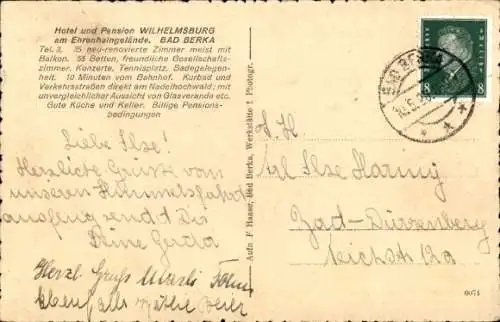 Hotel und Pension WILHELMSBURG
am Ehrenhaingelände. BAD BERKA
Tel. 3. 35 neu-renovierte Zimmer meist mit
Balkon. 55 Betten, freundliche Gesellschafts-
zimmer. Konzerte, Tennisplatz. Badegelegen-
heit. 10 Minuten vom Bahnhof. Kurbad und
Verkehrsstraßen direkt am Nadelhochwald; mit
unvergleichlicher Aussicht von Glasveranda etc.
Gute Küche und Keller. Billige Pensions-
bedingungen
Liebe Ilse!
Herzliche Grüße von
unseren Himmelsfahrt
ausflug sendet Dir
Deine Gerda
Herzl. Gruß
Aufn F Haase, Bad Berka, Werkstätte f. Photogr.
8 8
BAD BERKA
Ilse
Bad-Dürrenberg
Reichstr 12a
6071